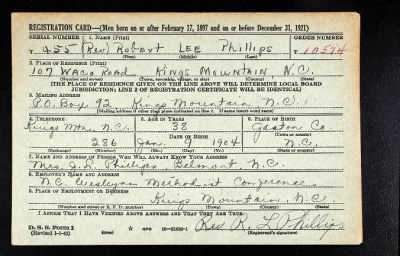 REGISTRATION CARD—(Men born on or after February 17, 1897 and on or before December 31, 1921)
SERIAL NUMBER 1. NAME (Print) ORDER NUMBER
T 455 (Rev) Robert LEE Phillips T 10574
(First) (Middle) (Last)
3. PLACE OF RESIDENCE (Print)
107 Waco Road Kings Mountain, N.C.
(Number and street) (Town, township, village, or city) (County) (State)
[THE PLACE OF RESIDENCE GIVEN ON THE LINE ABOVE WILL DETERMINE LOCAL BOARD
JURISDICTION; LINE 3 OF REGISTRATION CERTIFICATE WILL BE IDENTICAL]
3. MAILING ADDRESS
P.O. Box 92, Kings Mountain, N.C.
[Mailing address if other than place indicated on line 2. If same insert word same]
4. TELEPHONE 5. AGE IN YEARS 6. PLACE OF BIRTH
Kings Mtn. N.C. 38 Gaston Co.
DATE OF BIRTH (Town or county)
286 Jan. 9 1904 N.C.
(Exchange) (Number) (Mo.) (Day) (Yr.) (State or country)
7. NAME AND ADDRESS OF PERSON WHO WILL ALWAYS KNOW YOUR ADDRESS
Mrs. J.R. Phillips, Belmont N.C.
8. EMPLOYER'S NAME AND ADDRESS
N.C. Wesleyan Methodist Conference
9. PLACE OF EMPLOYMENT OR BUSINESS
Kings Mountain, N.C.
(Number and street or R. F. D. number) (Town) (County) (State)
I AFFIRM THAT I HAVE VERIFIED ABOVE ANSWERS AND THAT THEY ARE TRUE.
D. S. S. Form 1
(Revised 1-1-42) (over) Rev R. L. Phillips
(Registrant's signature)